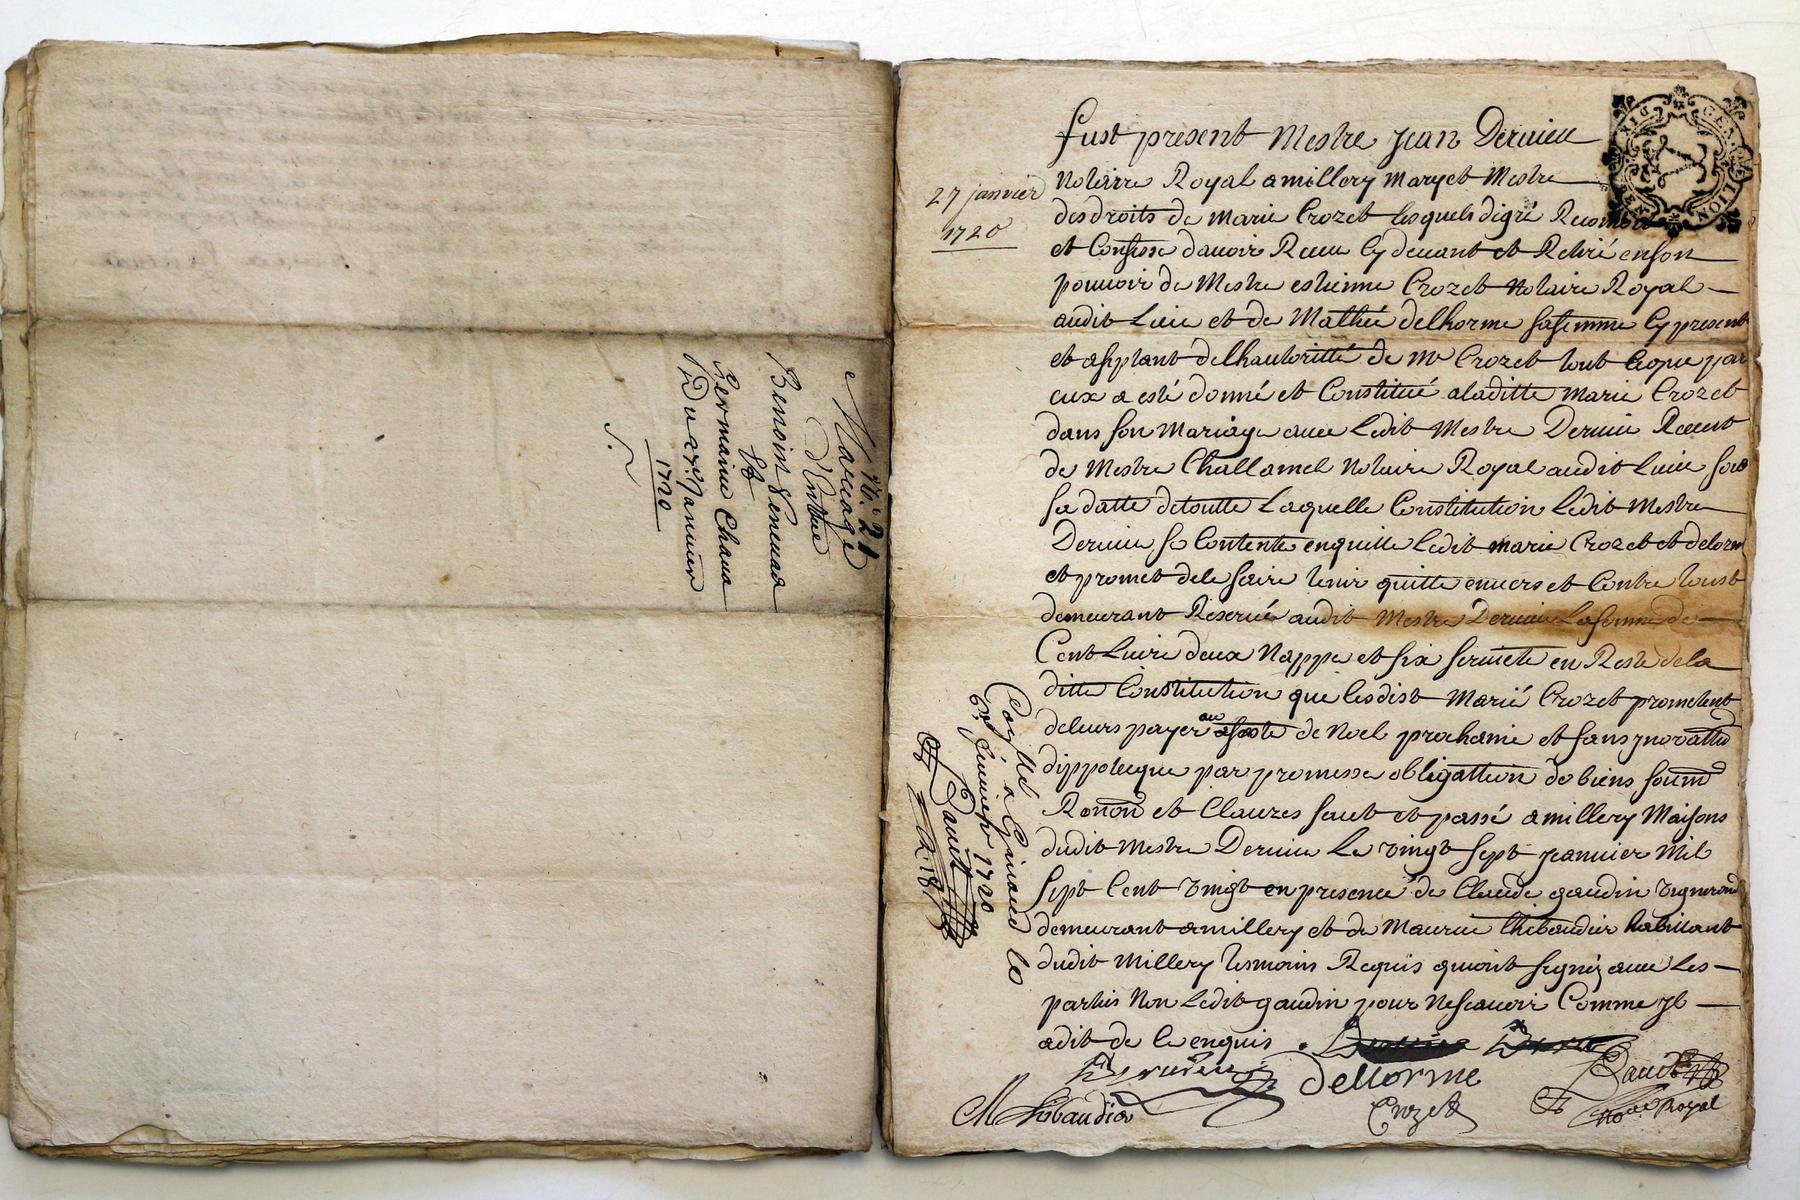 N.° 21
Mariage
d'entre
Benoist Veneuad
Et
Germaine Chaua
Du 27.e Januier
1720
27 janvier
1720
GEN LION
fust present Mestre jean Deruieu
Notaire Royal amillery maryet Mestre
des droits de marie Crozet lesquels digré
et Confesse dauoir Receu Cy deuant et Retiré enson
pouuoir de Mestre estienne Crozet Notaire Royal
audit Lieu et de Mathie delhorme safemme Cy present
et delhautoritté de Mr Crozet tout Ceque par
eux a esté donné et Constitué aladitte marie Crozet
dans son Mariage auec Ledit Mestre Deruieu Receut
de Mestre Challamel Notaire Royal audit Lieu sous
sa datte detoutte Laquelle Constitution Ledit Mestre
Deruieu se Contente enquitte Ledit marie Crozet et delorm
et promet dele faire tenir quitte enuers et Contre toust
demeurant Reserué audit Mestre Deruieu Lasomme de
Cent Liure deux Nappe et six seruiete en Reste dela
ditte Constitution que lesdist Marié Crozet prometent
deleurs payer au feste de Noel prochaine et sans ynovattio
dippotecque par promesse obligattion de biens soum
Renon et Clauzes faut et passé amillery Maisons
dudit Mestre Deruieu Le vingt sept jeanuier Mil
sept Cent vingt en presence de Claude gaudin vigneron
demeurant amillery et de Maurice thibaudier habittant
dudit Millery tesmoins Requis quiont signéz auec Les
parties Non Ledit gaudin pour Nescauoir Comme yl
adit de Ce enquis
Deruieu delorme
M Thibaudier Crozet
no.re Royal
Conflé a Giuaud le
feurier 1720